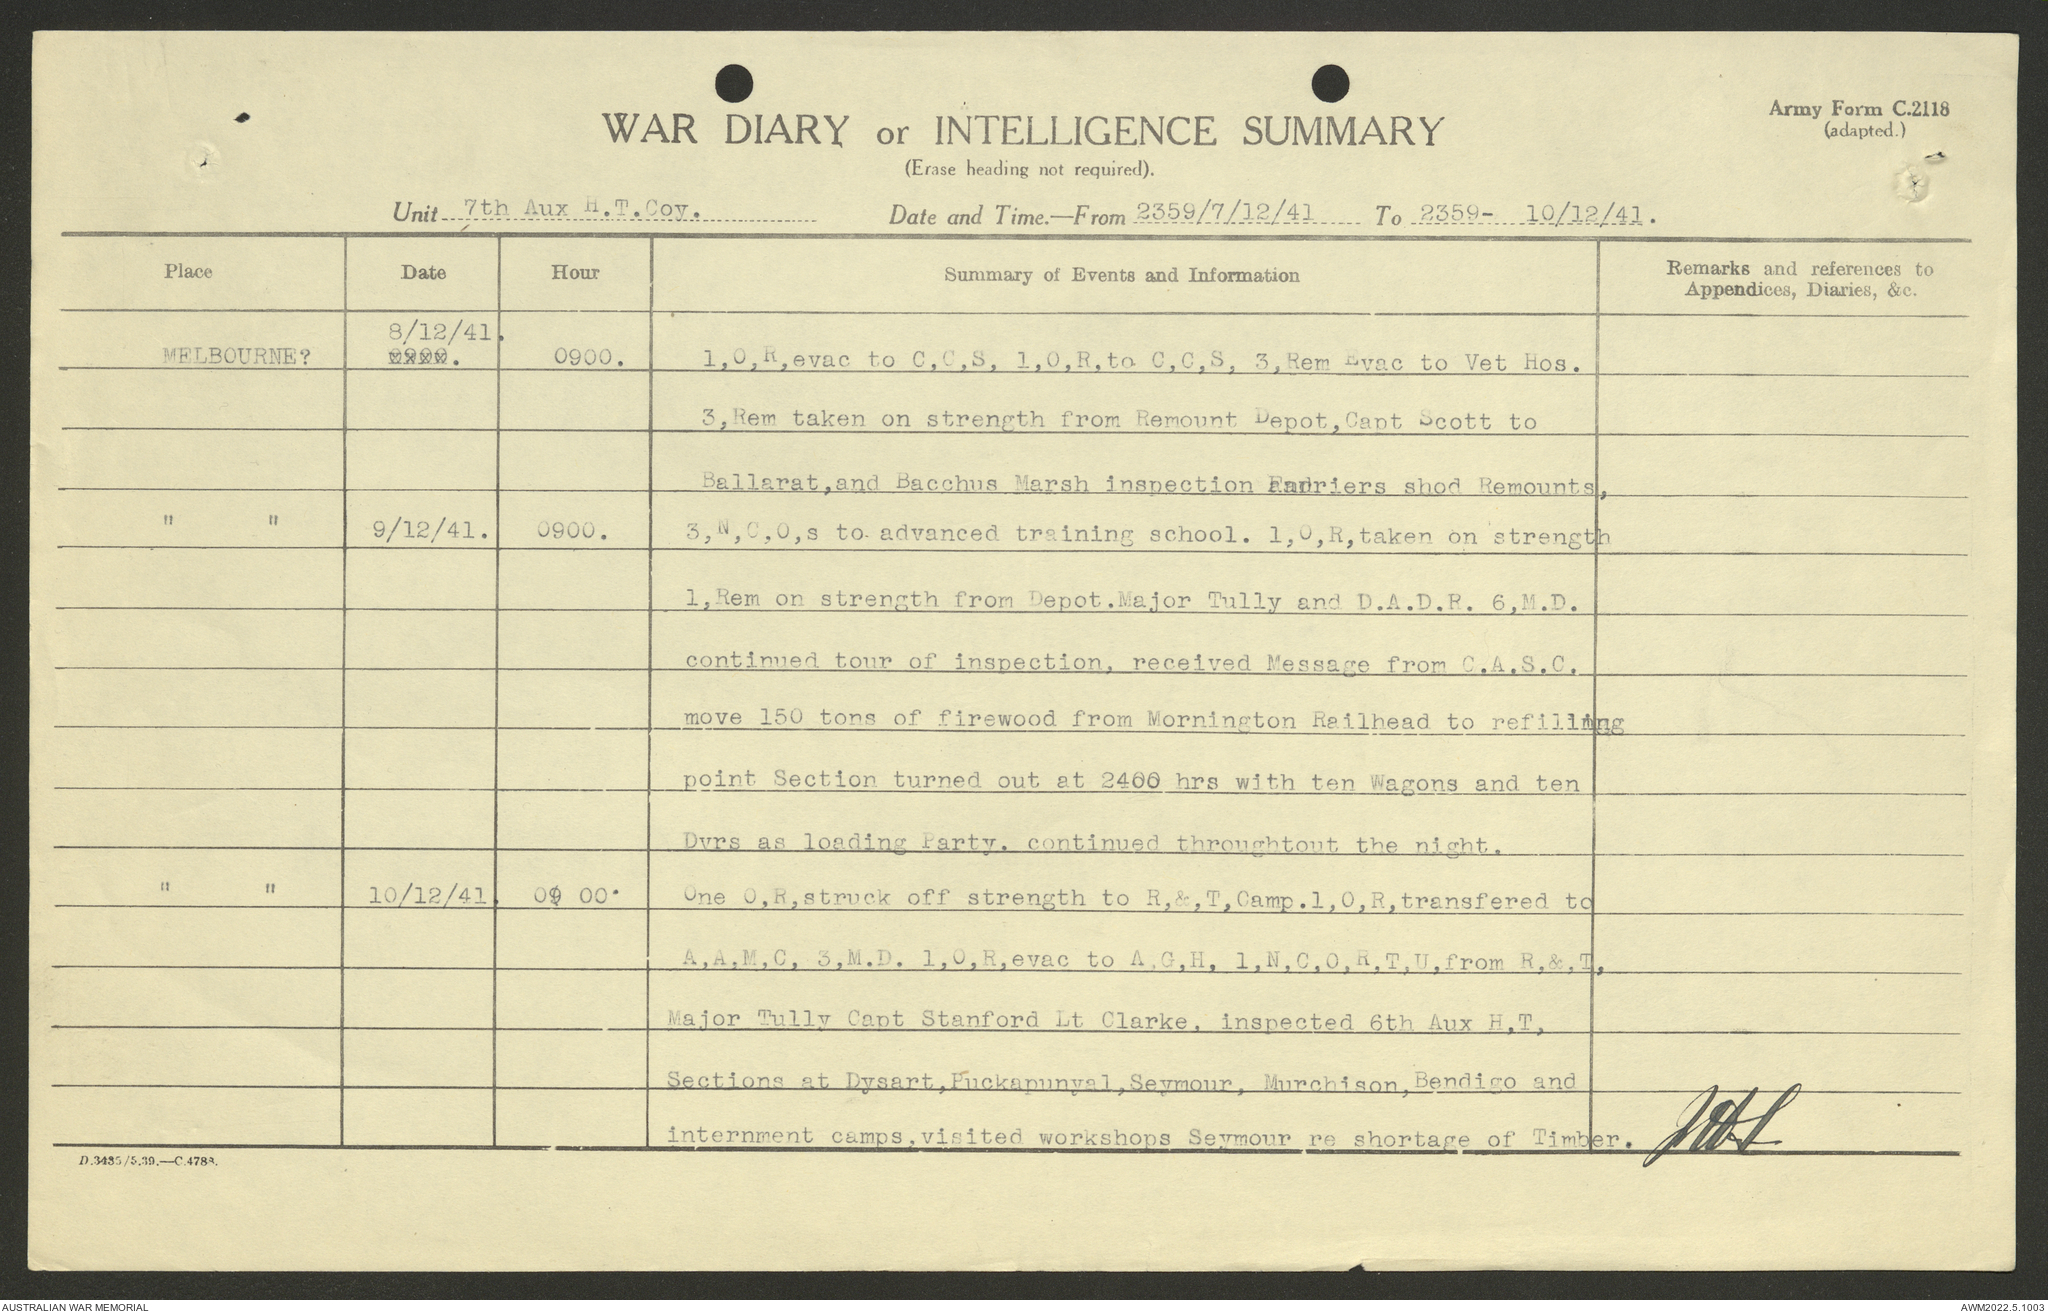 Army Form C.2118
(adapted.)
WAR DIARY or INTELLIGENCE SUMMARY
(Erase heading not required).
Unit 7th Aux H.T.Coy. Date and Time.—From 2359/7/12/41 To 2359- 10/12/41.
Place Date Hour Summary of Events and Information Remarks and references to
Appendices, Diaries, &c.
8/12/41.
MELBOURNE? 0900. 0900. 1,O,R,evac to C,C,S, 1,O,R,to C,C,S, 3,Rem Evac to Vet Hos.
3,Rem taken on strength from Remount Depot,Capt Scott to
Ballarat,and Bacchus Marsh inspection Farriers shod Remounts,
" " 9/12/41. 0900. 3,N,C,O,s to advanced training school. 1,O,R,taken on strength
1,Rem on strength from Depot.Major Tully and D.A.D.R. 6,M.D.
continued tour of inspection, received Message from C.A.S.C.
move 150 tons of firewood from Mornington Railhead to refilling
point Section turned out at 2400 hrs with ten Wagons and ten
Dvrs as loading Party. continued throughtout the night.
" " 10/12/41. 09 00. One O,R,struck off strength to R,&,T,Camp.1,O,R,transfered to
A,A,M,C, 3,M.D. 1,O,R,evac to A,G,H, 1,N,C,O,R,T,U,from R,&,T,
Major Tully Capt Stanford Lt Clarke, inspected 6th Aux H,T,
Sections at Dysart,Puckapunyal,Seymour, Murchison,Bendigo and
internment camps,visited workshops Seymour re shortage of Timber.
D.3435/5.39.—C.4788.
AUSTRALIAN WAR MEMORIAL AWM2022.5.1003